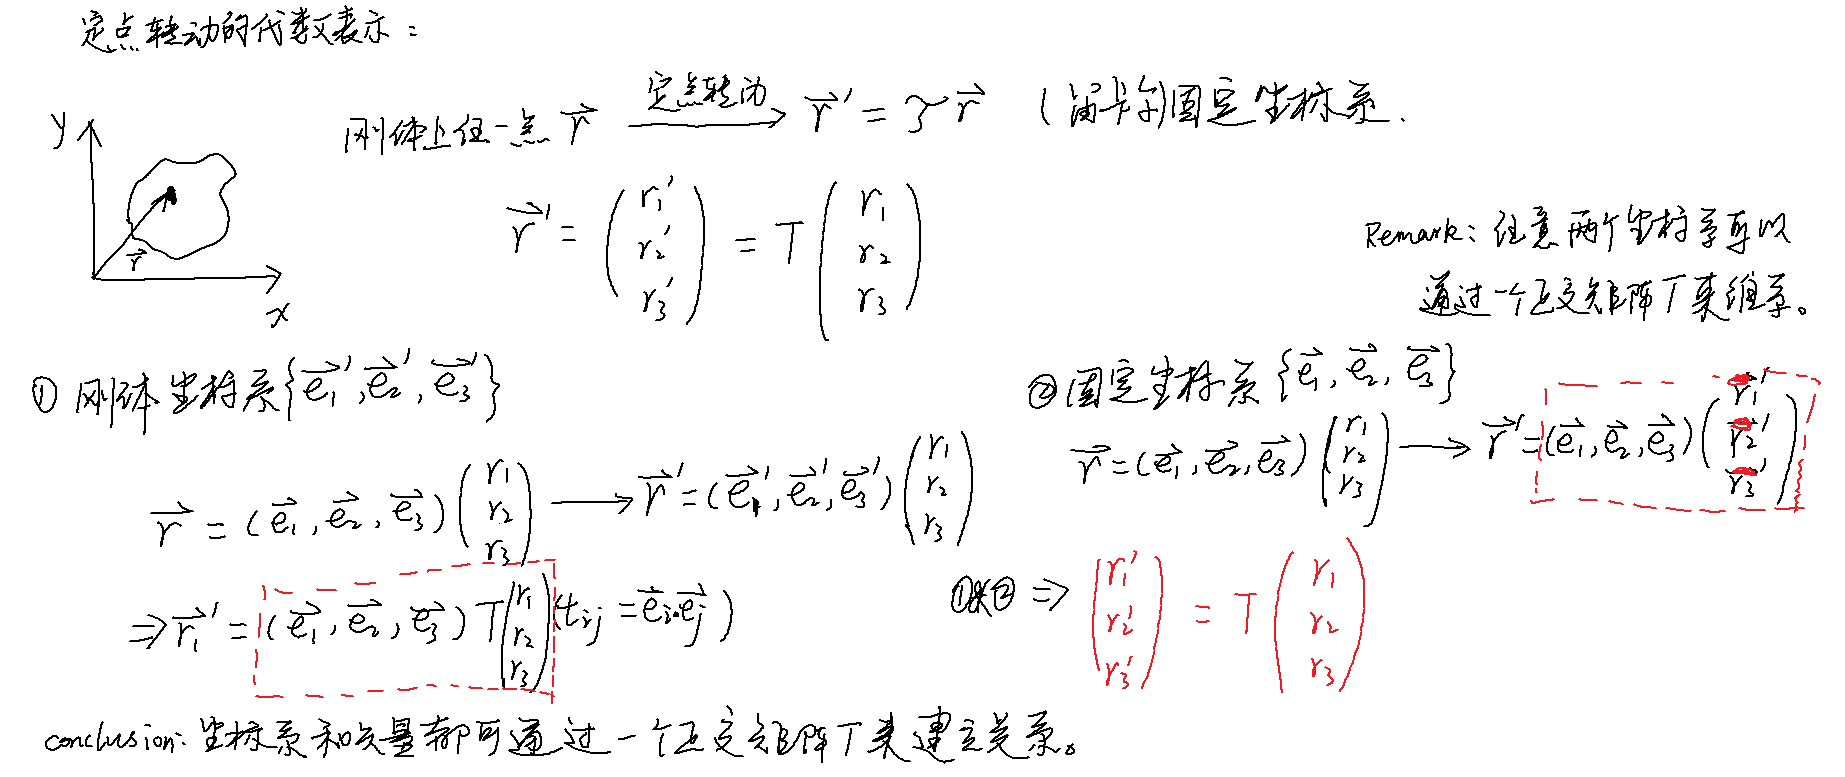 定点转动的代数表示：
刚体上任一点 r⃗ —定点转动→ r⃗' = 𝒯r⃗ （笛卡尔)固定坐标系.
y
r⃗
x
r⃗' = (r₁' r₂' r₃') = T (r₁ r₂ r₃)
Remark: 任意两个坐标系可以
通过一个正交矩阵T来维系。
① 刚体坐标系{e⃗₁', e⃗₂', e⃗₃'}
r⃗ = (e⃗₁, e⃗₂, e⃗₃) (r₁ r₂ r₃) → r⃗' = (e⃗₁', e⃗₂', e⃗₃') (r₁ r₂ r₃)
⇒ r⃗₁' = (e⃗₁, e⃗₂, e⃗₃) T (r₁ r₂ r₃) (tᵢⱼ = e⃗ᵢ·e⃗ⱼ')
② 固定坐标系 {e⃗₁, e⃗₂, e⃗₃}
r⃗ = (e⃗₁, e⃗₂, e⃗₃) (r₁ r₂ r₃) → r⃗' = (e⃗₁, e⃗₂, e⃗₃) (r₁' r₂' r₃')
①② ⇒ (r₁' r₂' r₃') = T (r₁ r₂ r₃)
conclusion: 坐标系和矢量都可通过一个正交矩阵T来建立关系。